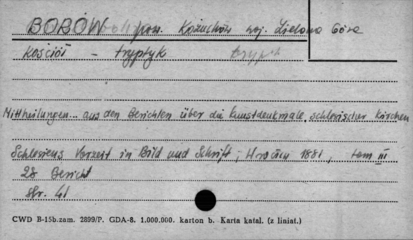 BOBÓW pow. Kożuchów woj. Zielona Góra
Kościół – tryptyk trypt
Mittheilungen... aus den Berichten über die Kunstdenkmale schlesischer Kirchen
Schlesiens Vorzeit in Bild und Schrift, Wrocław 1881, tom III
28 Bericht
str. 41
CWD B-15b.zam. 2899/P. GDA-8. 1.000.000. karton b. Karta katal. (z liniat.)